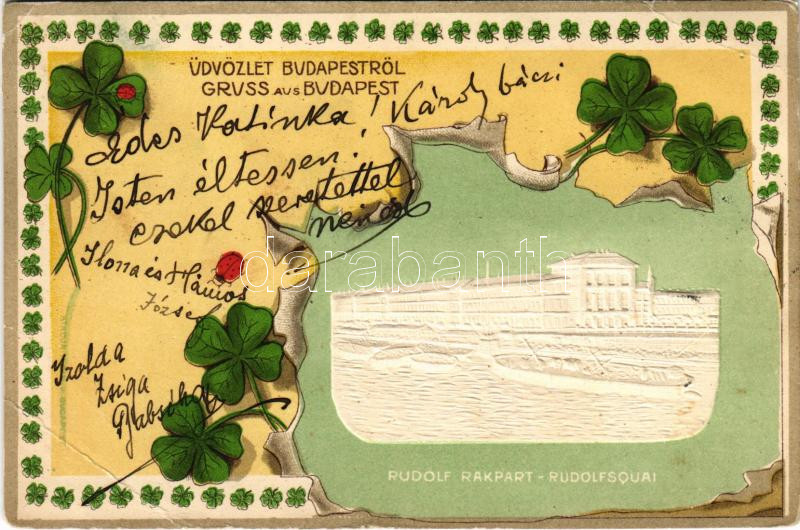 ÜDVÖZLET BUDAPESTRÖL
GRUSS AUS BUDAPEST
Édes Katinka! Károly bácsi
Isten éltessen!
ezekel szeretettel
Ilona és
József
Izolda
Zsiga
darabanth
RUDOLF RAKPART - RUDOLFSQUAI